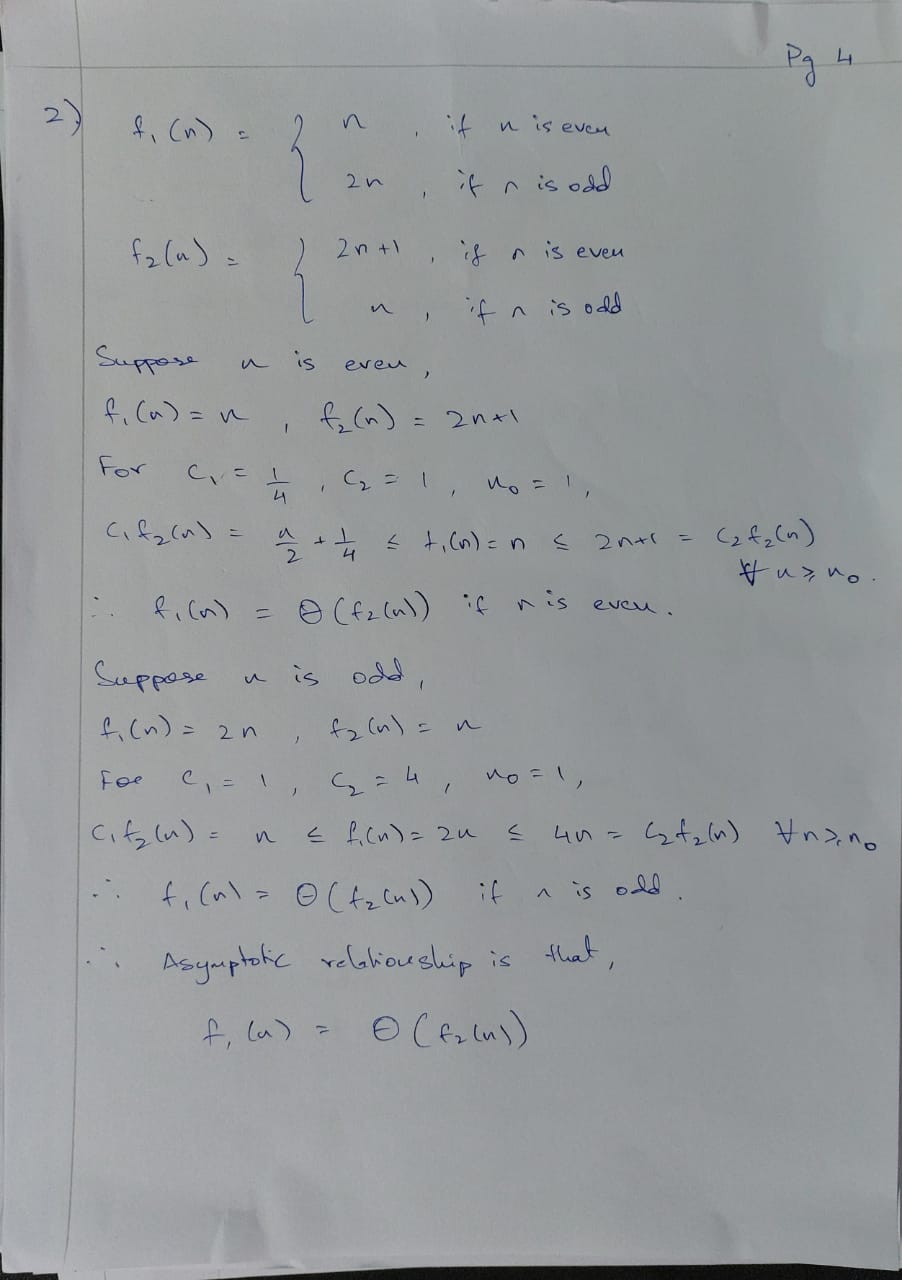 Pg 4
2) f₁(n) = { n , if n is even
2n , if n is odd
f₂(n) = { 2n+1 , if n is even
n , if n is odd
Suppose n is even,
f₁(n) = n , f₂(n) = 2n+1
For c₁ = 1/4 , c₂ = 1 , n₀ = 1,
c₁f₂(n) = n/2 + 1/4 ≤ f₁(n) = n ≤ 2n+1 = c₂f₂(n)
∀ n ≥ n₀.
∴ f₁(n) = Θ(f₂(n)) if n is even.
Suppose n is odd,
f₁(n) = 2n , f₂(n) = n
For c₁ = 1 , c₂ = 4 , n₀ = 1,
c₁f₂(n) = n ≤ f₁(n) = 2n ≤ 4n = c₂f₂(n) ∀n≥n₀
∴ f₁(n) = Θ(f₂(n)) if n is odd.
∴ Asymptotic relationship is that,
f₁(n) = Θ(f₂(n))